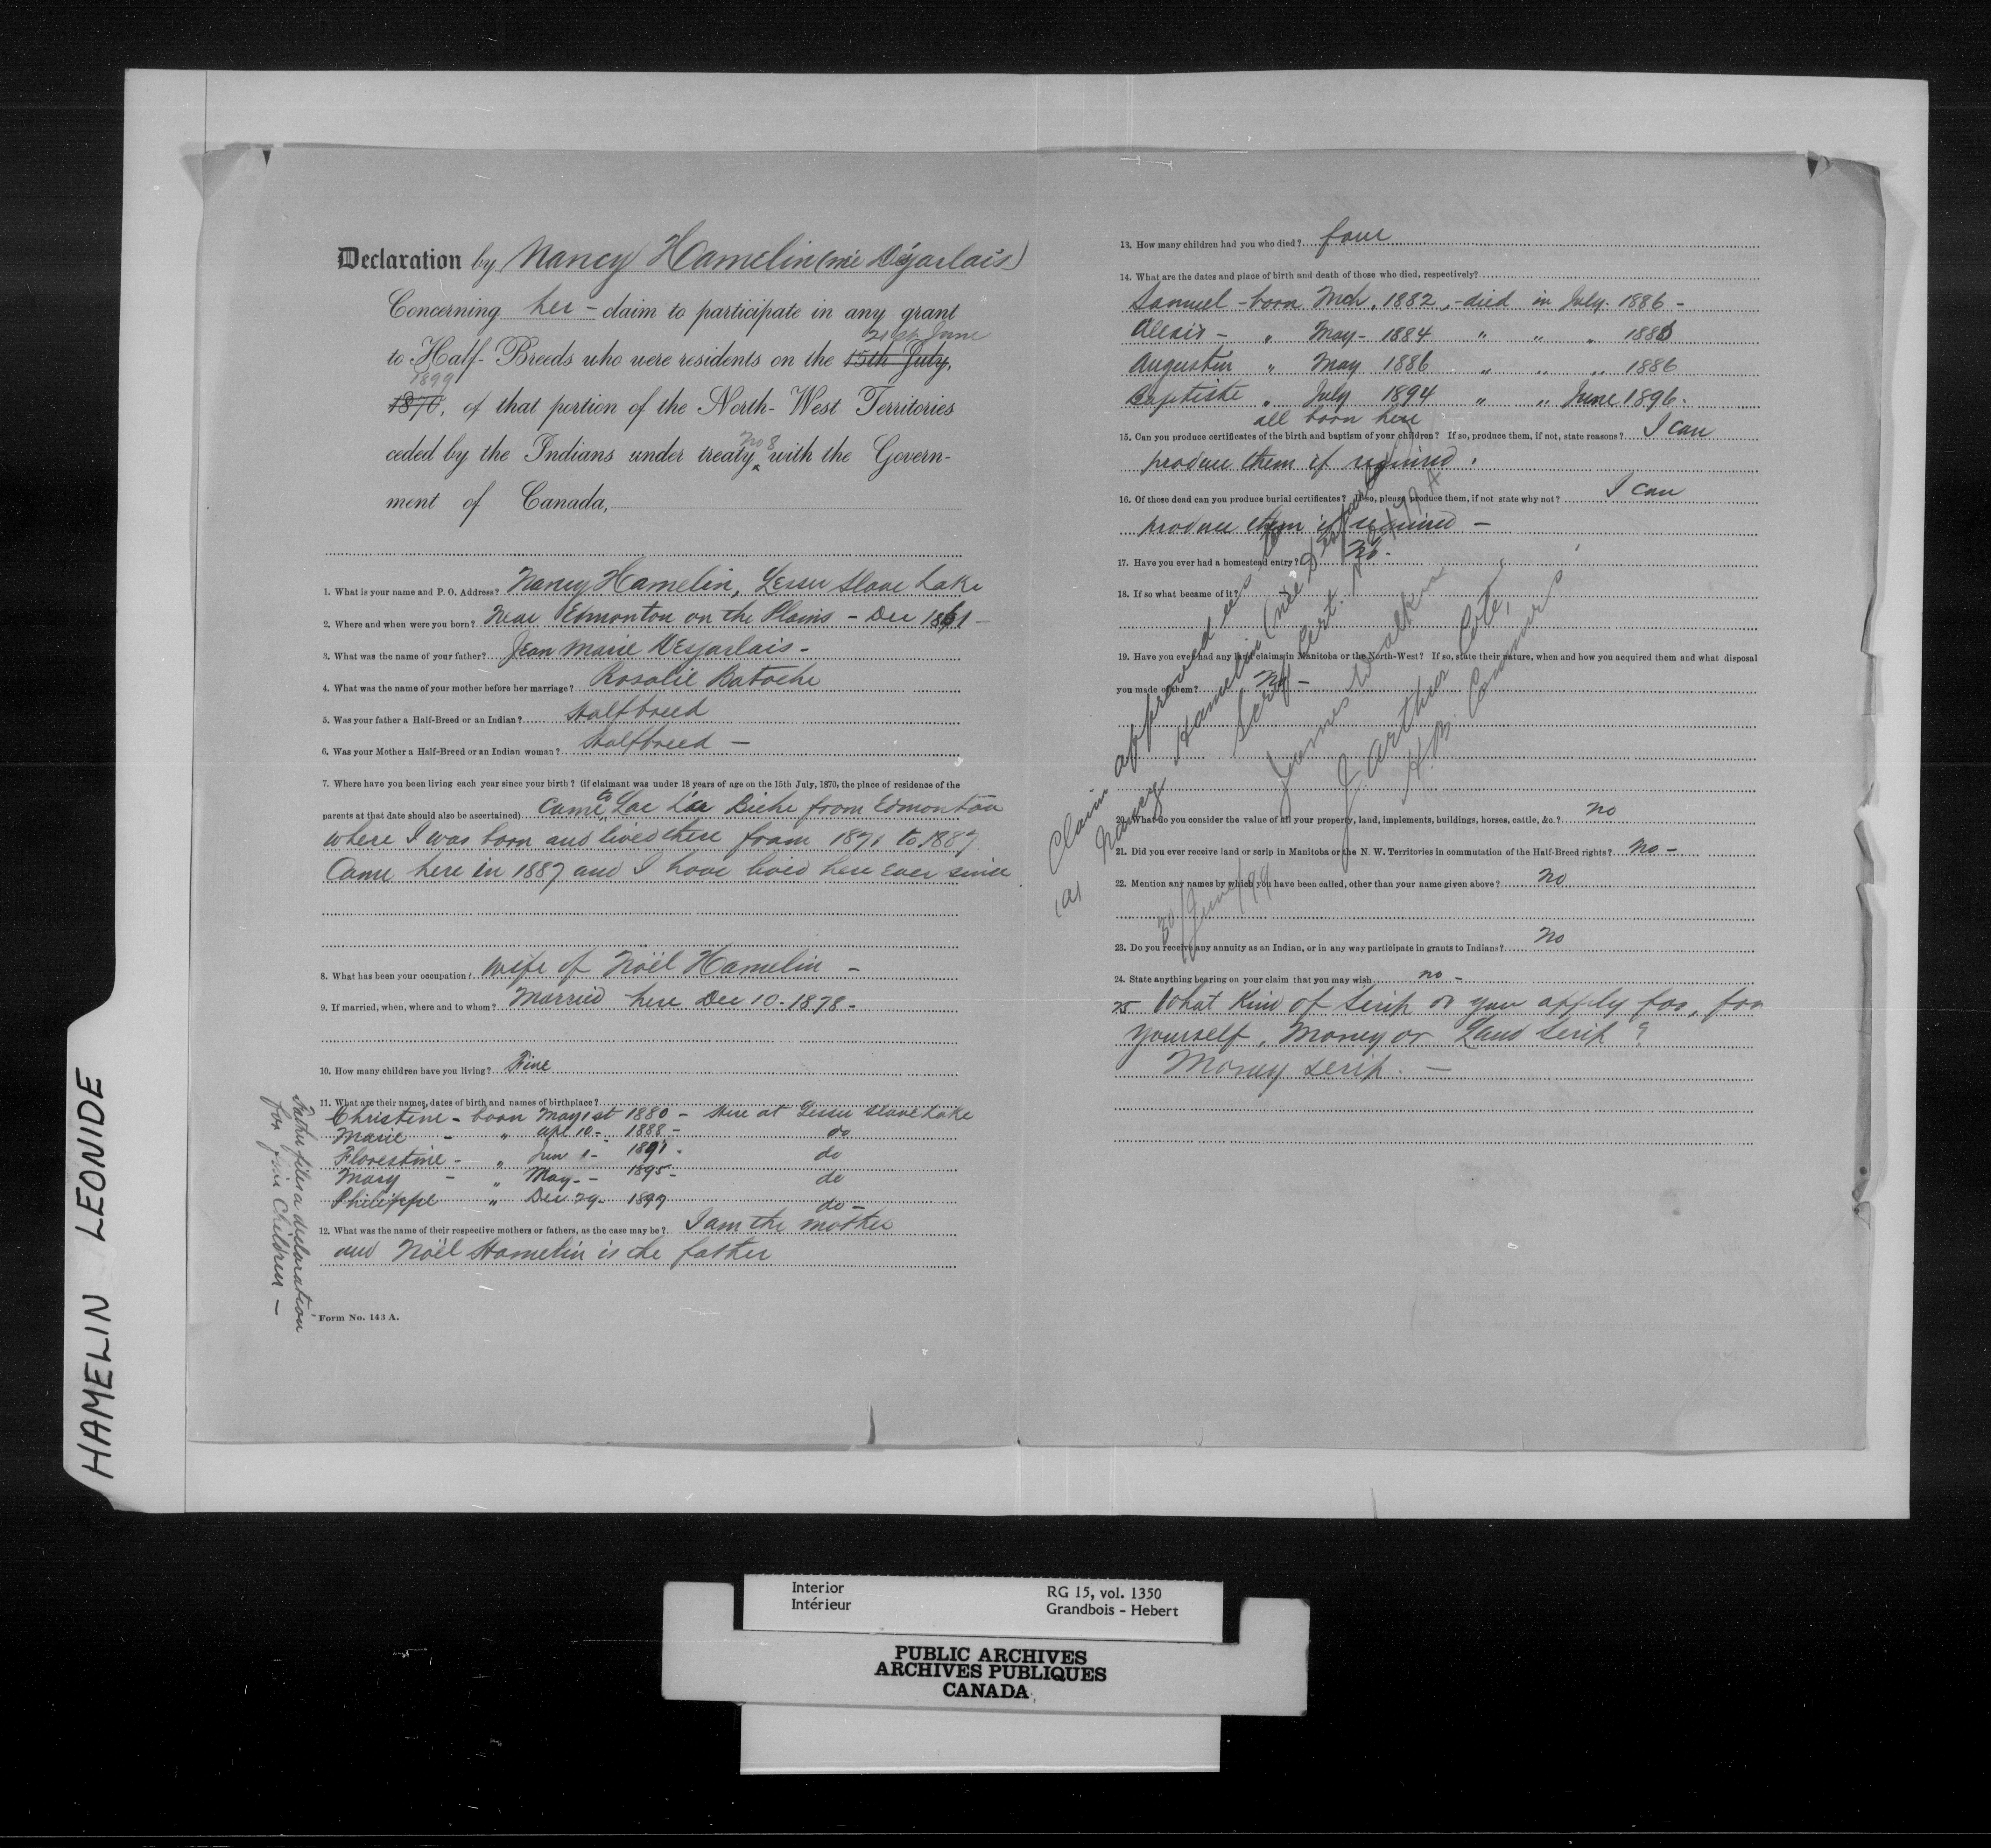 HAMELIN LEONIDE
Declaration by Nancy Hamelin (née Desjarlais)
Concerning her - claim to participate in any grant
21st June
to Half-Breeds who were residents on the 15th July,
1899
1870, of that portion of the North-West Territories
No 8
ceded by the Indians under treaty ‸ with the Govern-
ment of Canada,
1. What is your name and P. O. Address? Nancy Hamelin, Lesser Slave Lake
2. Where and when were you born? Near Edmonton on the Plains - Dec 1861 -
3. What was the name of your father? Jean Marie Desjarlais -
4. What was the name of your mother before her marriage? Rosalie Batoche
5. Was your father a Half-Breed or an Indian? Halfbreed
6. Was your Mother a Half-Breed or an Indian woman? Halfbreed -
7. Where have you been living each year since your birth? (if claimant was under 18 years of age on the 15th July, 1870, the place of residence of the
parents at that date should also be ascertained) Came to Lac La Biche from Edmonton
where I was born and lived there from 1871 to 1887
Came here in 1887 and I have lived here ever since
8. What has been your occupation? Wife of Noël Hamelin -
9. If married, when, where and to whom? Married here Dec 10 - 1878 -
10. How many children have you living? Five
11. What are their names, dates of birth and names of birthplace?
Christine - born May 1st 1880 - Here at Lesser Slave Lake
Marie - " Apl 10 - 1888 - do
Florestine - " Jun 1 - 1891 - do
Mary - " May - 1895 - do
Philippe " Dec 29 - 1899 do -
12. What was the name of their respective mothers or fathers, as the case may be? I am the mother
and Noël Hamelin is the father
Father files a declaration
for five Children -
Form No. 143 A.
13. How many children had you who died? four
14. What are the dates and place of birth and death of those who died, respectively?
Samuel - born Mch, 1882, - died in July. 1886 -
Alexis - " May - 1884 " " " 1886
Augustin " May 1886 " " " 1886
Baptiste " July 1894 " " June 1896.
all born here
15. Can you produce certificates of the birth and baptism of your children? If so, produce them, if not, state reasons? I can
produce them if required.
16. Of those dead can you produce burial certificates? If so, please produce them, if not state why not? I can
produce them if required -
17. Have you ever had a homestead entry? No -
18. If so what became of it?
19. Have you ever had any land claims in Manitoba or the North-West? If so, state their nature, when and how you acquired them and what disposal
you made of them? No -
20. What do you consider the value of all your property, land, implements, buildings, horses, cattle, &c.? No
21. Did you ever receive land or scrip in Manitoba or the N. W. Territories in commutation of the Half-Breed rights? No -
22. Mention any names by which you have been called, other than your name given above? No
23. Do you receive any annuity as an Indian, or in any way participate in grants to Indians? No
24. State anything bearing on your claim that you may wish no -
25 What Kind of Scrip do you apply for, for
yourself, Money or Land Scrip?
Money scrip. -
Claim approved
Nancy Hamelin (née Desjarlais)
Scrip Cert.
James Walker
J. Arthur Coté,
H.B. Commrs
30 June/99
Interior
Intérieur
RG 15, vol. 1350
Grandbois - Hebert
PUBLIC ARCHIVES
ARCHIVES PUBLIQUES
CANADA